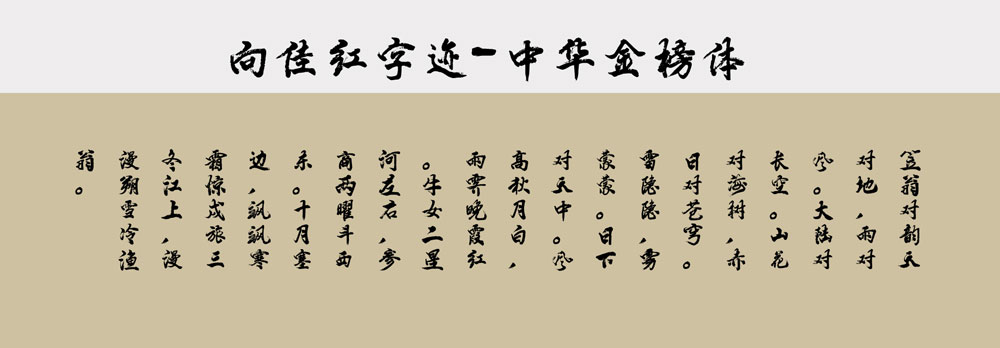 向佳红字迹-中华金榜体
笠翁对韵天
对地,雨对
风。大陆对
长空。山花
对海树,赤
日对苍穹。
雷隐隐,雾
蒙蒙。日下
对天中。风
高秋月白,
雨霁晚霞红
。牛女二星
河左右,参
商两曜斗西
东。十月塞
边,飒飒寒
霜惊戍旅三
冬江上,漫
漫朔雪冷渔
翁。